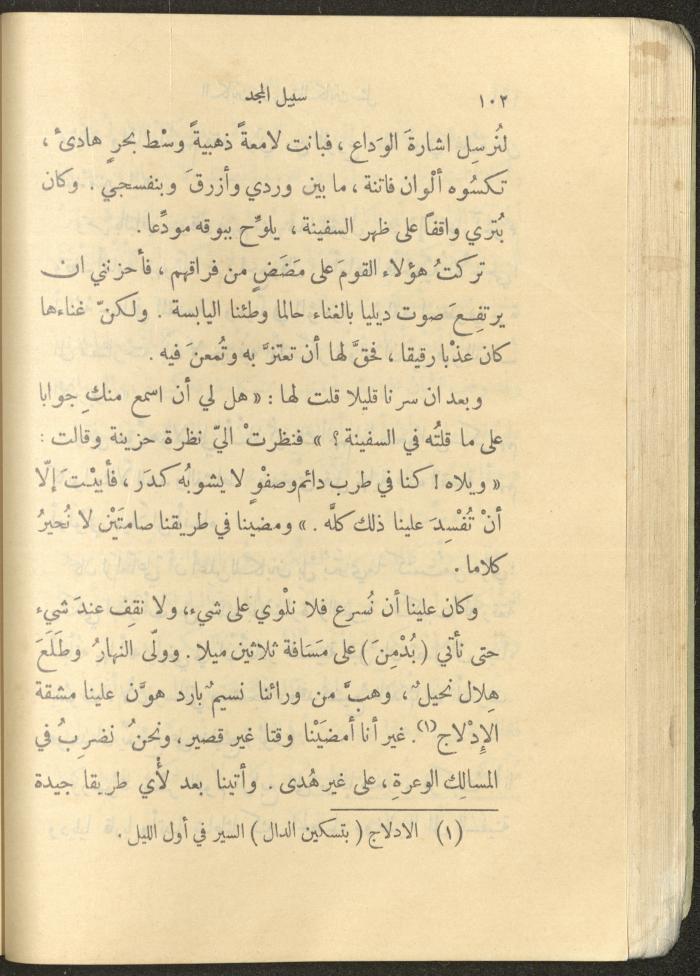 ١٠٢ سبيل المجد
لنُرسِل اشارةَ الوَداع ، فبانت لامعةً ذهبيةً وسْط بحرٍ هادئ ،
تكسُوه ألْوان فاتنة ، ما بين وردي وأزرقَ وبنفسجي . وكان
بُتري واقفاً على ظهر السفينة ، يلوِّح ببوقه مودِّعا .
تركتُ هؤلاء القومَ على مَضَضٍ من فراقهم ، فأحزنني ان
يرتفِعَ صوت ديليا بالغناء حالما وطئنا اليابسة . ولكنّ غناءها
كان عذْبا رقيقا ، فحقَّ لها أن تعتزَّ به وتُمعنَ فيه .
وبعد ان سرنا قليلا قلت لها : « هل لي أن اسمع منكِ جوابا
على ما قلتُه في السفينة ؟ » فنظرتْ اليّ نظرة حزينة وقالت :
« ويلاه ! كنا في طرب دائم وصفْوٍ لا يشوبُه كدَر ، فأبيْتَ إلّا
أنْ تُفْسِدَ علينا ذلك كلَّه . » ومضينا في طريقنا صامتَيْن لا نُحيرُ
كلاما .
وكان علينا أن نُسرع فلا نلْوي على شيء، ولا نقِف عندَ شيء
حتى نأتي ( بُدْمِنَ ) على مَسَافة ثلاثين ميلا . وولّى النهارُ وطَلَعَ
هِلال نحيلٌ ، وهبَّ من ورائنا نسيمٌ بارد هوَّن علينا مشقة
الإِدْلاج(١). غير أنا أمضَيْنا وقتا غير قصير، ونحنُ نضرِبُ في
المسالِك الوعرةِ ، على غير هُدى . وأتينا بعد لأْي طريقا جيدة
(١) الادلاج ( بتسكين الدال ) السير في أول الليل .